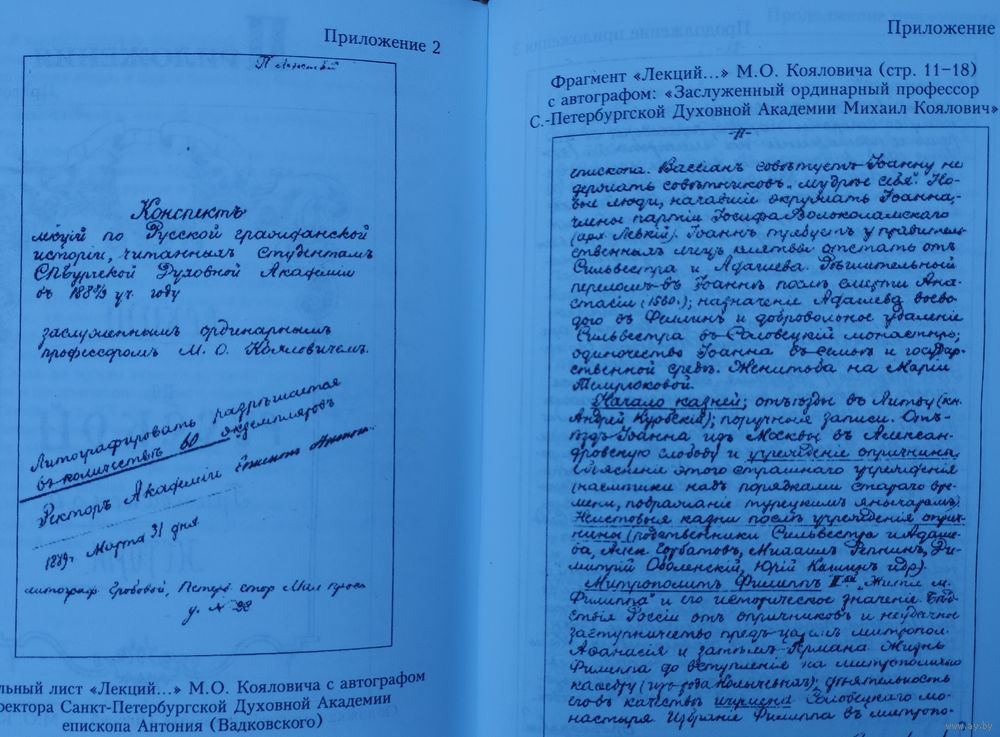 Приложение 2
Конспектъ
лекцій по Русской гражданской
исторіи, читанныхъ студентамъ
СПбургской Духовной Академіи
въ 188 уч. году
заслуженнымъ ординарнымъ
профессромъ М. О. Кояловичемъ.
Литографировать разрѣшается
въ количествѣ 60 экземпляровъ
Ректоръ Академіи
1889 г. Марта 31 дня
литограф. Гробовой, Петерб. стор.
у. №
льный лист «Лекций...» М.О. Кояловича с автографом
ректора Санкт-Петербургской Духовной Академии
епископа Антония (Вадковского)
Приложение
Фрагмент «Лекций...» М.О. Кояловича (стр. 11–18)
с автографом: «Заслуженный ординарный профессор
С.-Петербургской Духовной Академии Михаил Коялович»
-11-
епископа. Вассіанъ совѣтуетъ Іоанну не
держать совѣтниковъ „мудрѣе себя“. Но-
вые люди, начавшіе окружать Іоанна,
члены партіи Іосифа Волоколамскаго
Іоаннъ требуетъ у правитель-
ственныхъ лицъ клятвы отстать отъ
Сильвестра и Адашева. Рѣшительный
переломъ въ Іоаннѣ послѣ смерти Ана-
стасіи (1560.); назначеніе Адашева воево-
дою въ Феллинъ и добровольное удаленіе
Сильвестра въ Соловецкій монастырь;
одиночество Іоанна въ семьѣ и государ-
ственной средѣ. Женитьба на Маріи
Темрюковой.
Начало казней; отъѣзды въ Литву (кн.
Андрей Курбскій); поручныя записи. Отъ-
ѣздъ Іоанна изъ Москвы въ Алексан-
дровскую слободу и учрежденіе опричнины.
Объясненіе этого страшнаго учрежденія
(насмѣшки надъ порядками стараго вре-
мени, подражаніе турецкимъ янычарамъ).
Неистовыя казни послѣ учрежденія оприч-
нины (родственники Сильвестра и Адаше-
ва, Алек. Горбатовъ, Михаилъ Репнинъ, Ди-
митрій Оболенскій, Юрій Кашинъ и др).
Митрополитъ Филиппъ II „Житіе м.
Филиппа“ и его историческое значеніе. Бѣд-
ствія Россіи отъ опричниковъ и неудачное
заступничество предъ царемъ митропол.
Аѳанасія и затѣмъ Германа Жизнь
Филиппа до вступленія на митрополичью
каѳедру (изъ рода Колычевыхъ); дѣятельность
его въ качествѣ игумена Соловецкаго мо-
настыря Избраніе Филиппа въ митропо-
www.ay.by